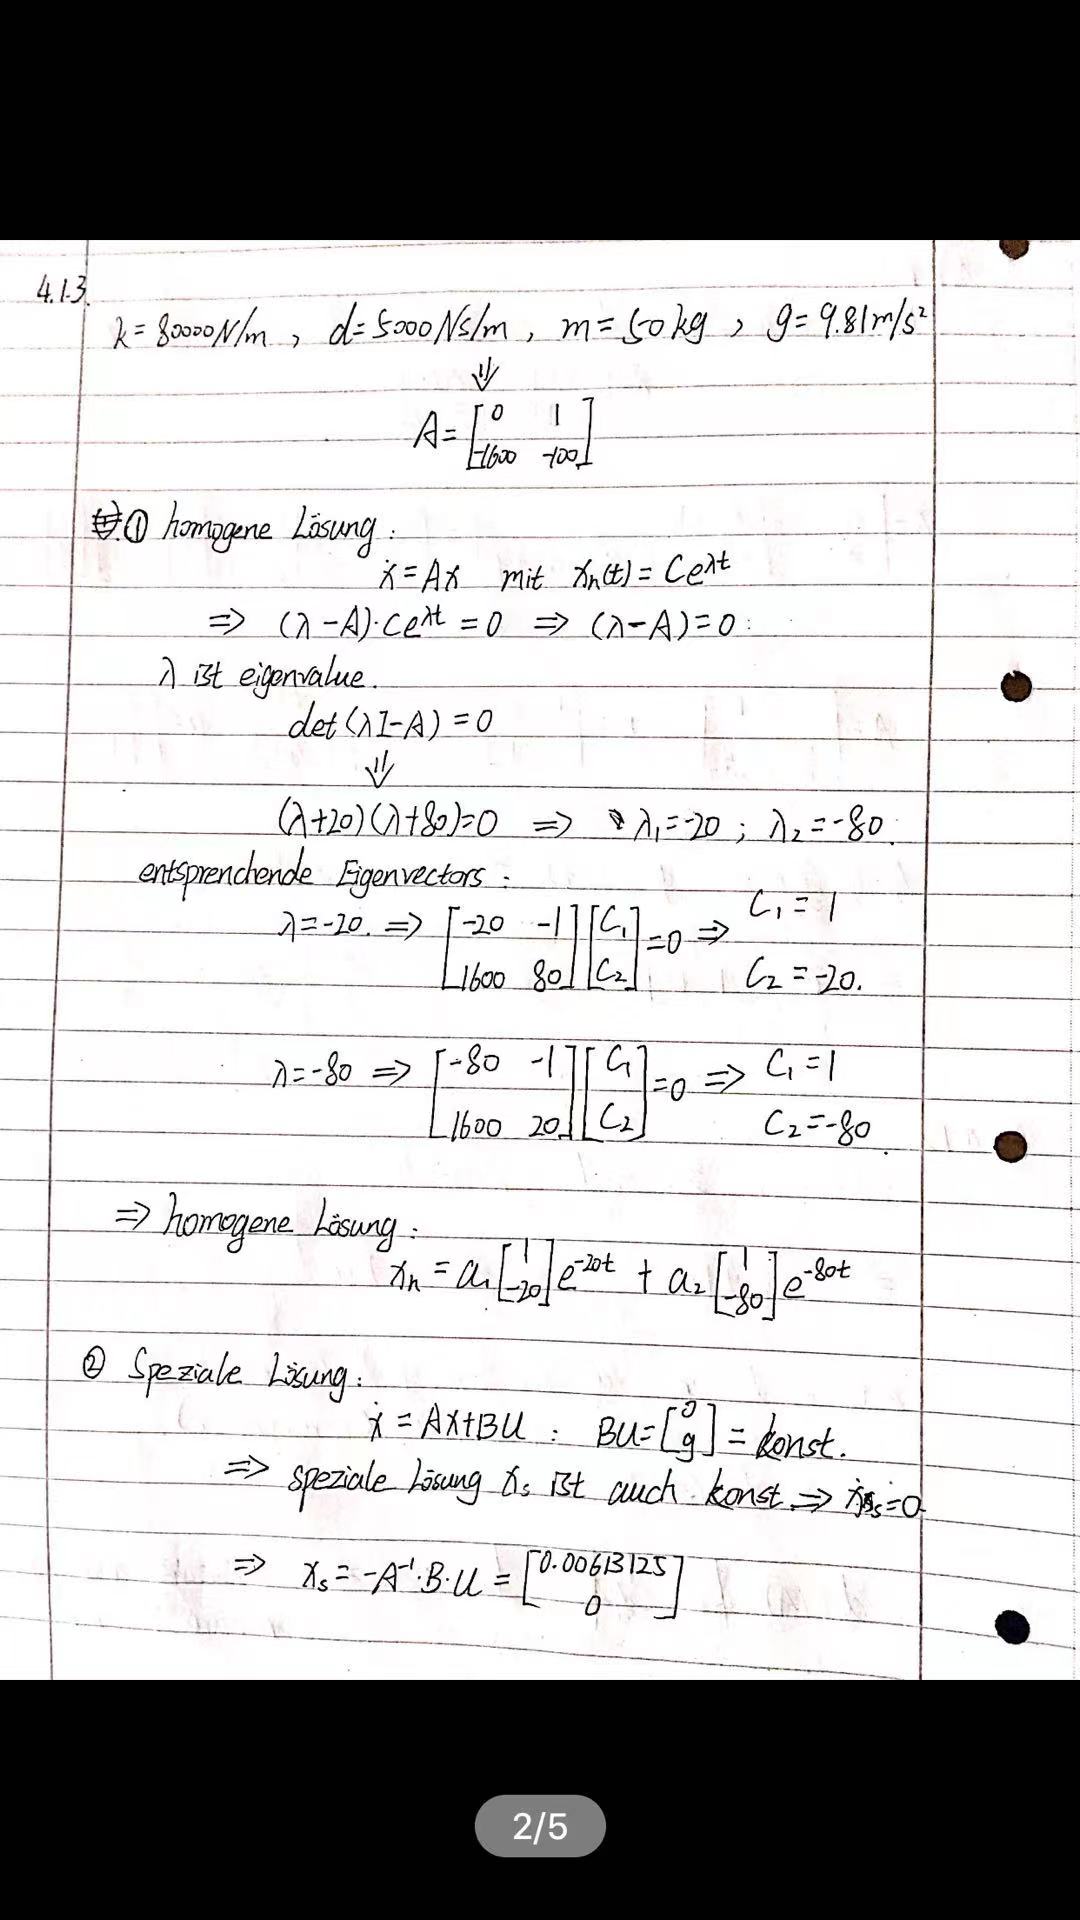 4.1.3.
k = 80000 N/m , d = 5000 Ns/m , m = 50 kg , g = 9.81 m/s²
⇓
A = [0 1; -1600 -100]
① homogene Lösung :
ẋ = Ax mit xₕ(t) = Ce^λt
⇒ (λ - A)·Ce^λt = 0 ⇒ (λ - A) = 0 :
λ ist eigenvalue.
det(λI - A) = 0
⇓
(λ+20)(λ+80) = 0 ⇒ λ₁ = -20 ; λ₂ = -80.
entsprenchende Eigenvectors :
λ = -20. ⇒ [-20 -1; 1600 80] [C₁; C₂] = 0 ⇒ C₁ = 1
C₂ = -20.
λ = -80 ⇒ [-80 -1; 1600 20] [C₁; C₂] = 0 ⇒ C₁ = 1
C₂ = -80.
⇒ homogene Lösung :
xₕ = a₁ [1; -20] e^-20t + a₂ [1; -80] e^-80t
② Speziale Lösung :
ẋ = Ax + BU : BU = [0; g] = konst.
⇒ speziale Lösung xₛ ist auch konst ⇒ ẋₛ = 0
⇒ xₛ = -A⁻¹·B·U = [0.00613125; 0]
2/5